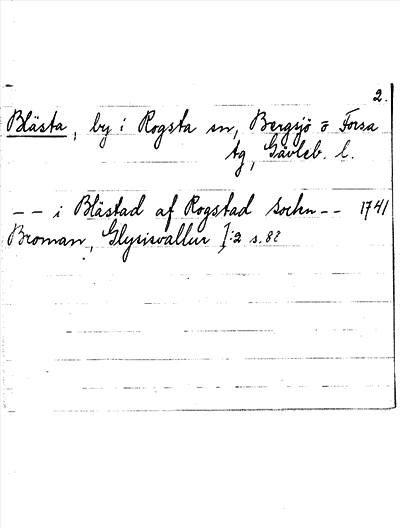 2.
Blästa, by i Rogsta sn, Bergsjö o Forsa
tg, Gävleb. l.
-- i Blästad af Rogstad Sochn -- 1741
Broman, Glysisvallur I:2 s. 82